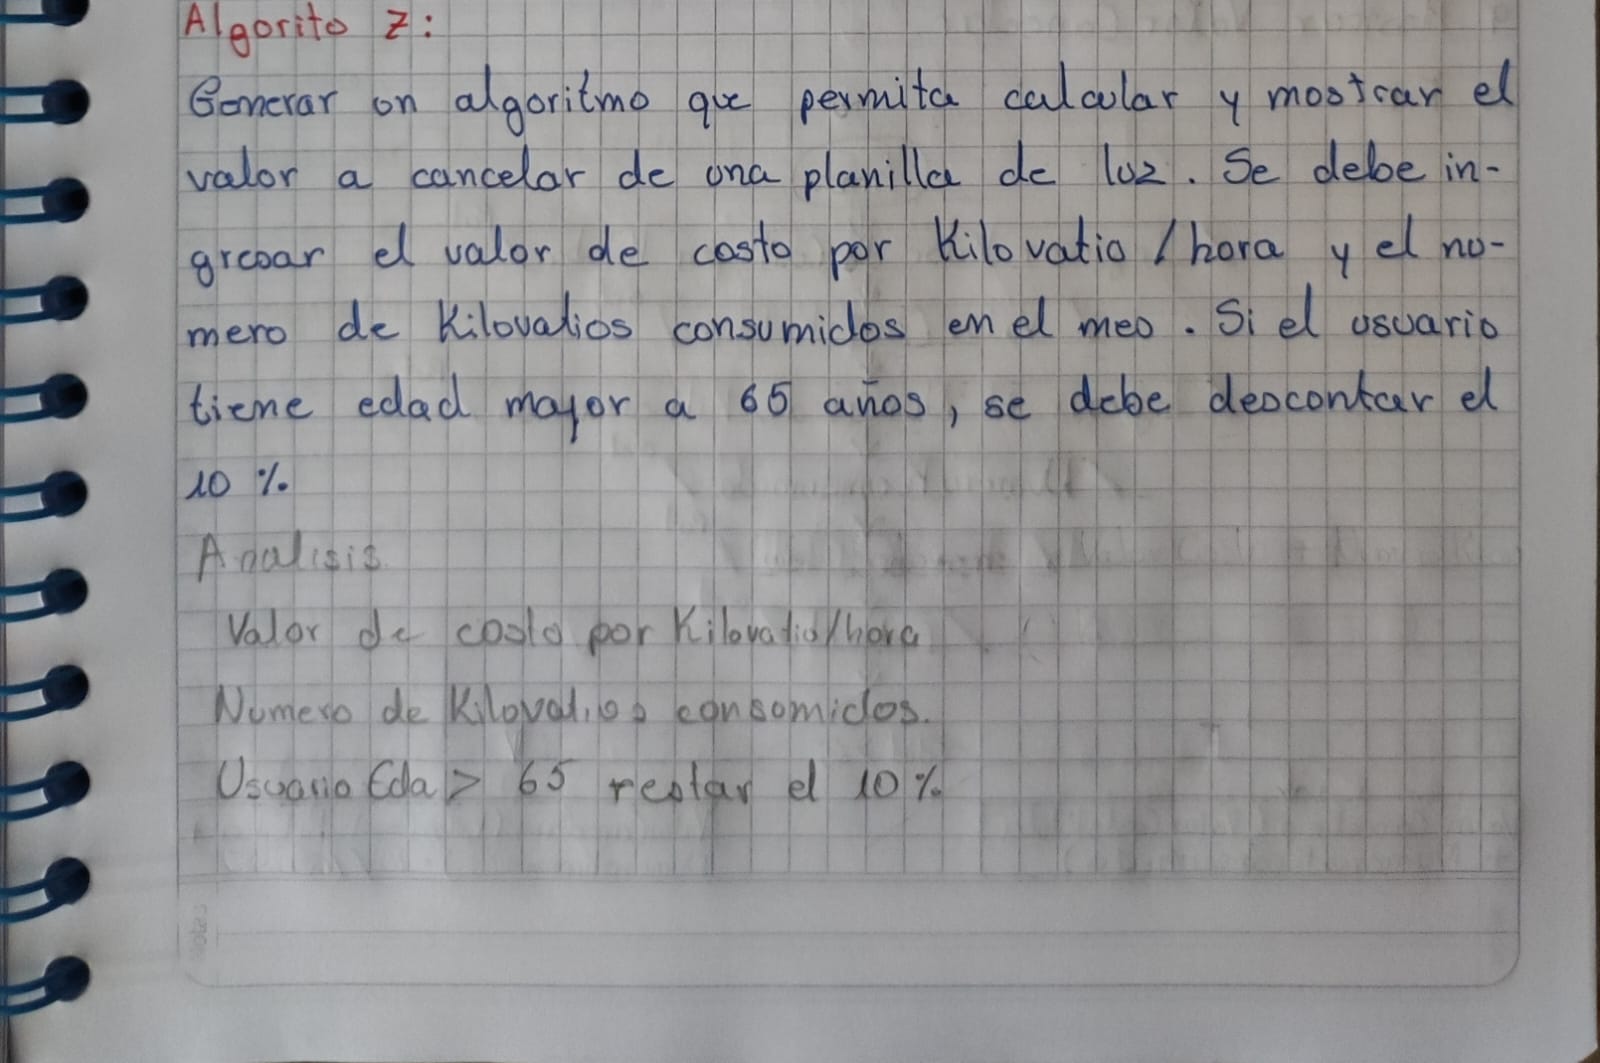 Algorito 2:
Generar un algoritmo que permita calcular y mostrar el
valor a cancelar de una planilla de luz. Se debe in-
gresar el valor de costo por Kilovatio / hora y el nu-
mero de Kilovatios consumidos en el mes. Si el usuario
tiene edad mayor a 65 años, se debe descontar el
10 %.
Analisis
Valor de costo por Kilovatio/hora
Numero de Kilovatios consumidos.
Usuario Eda > 65 restar el 10 %
Notas